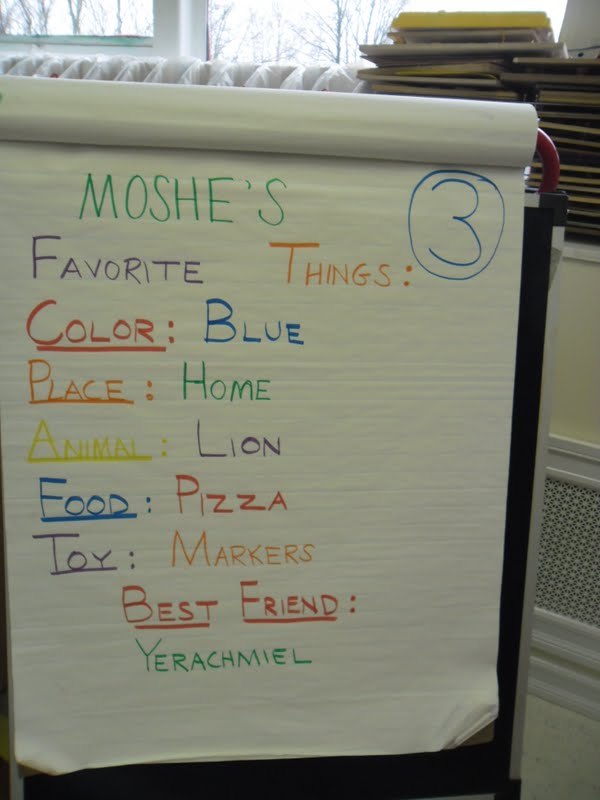 MOSHE'S
3
FAVORITE THINGS:
COLOR: BLUE
PLACE: HOME
ANIMAL: LION
FOOD: PIZZA
TOY: MARKERS
BEST FRIEND:
YERACHMIEL